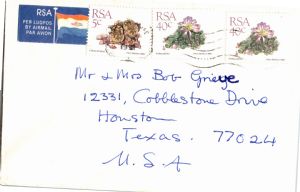 RSA
PER LUGPOS
BY AIRMAIL
PAR AVION
RSA
5c
RSA
40c
RSA
40c
Mr & Mrs Bob Grieye
12331, Cobblestone Drive
Houston
Texas. 77024
U.S.A